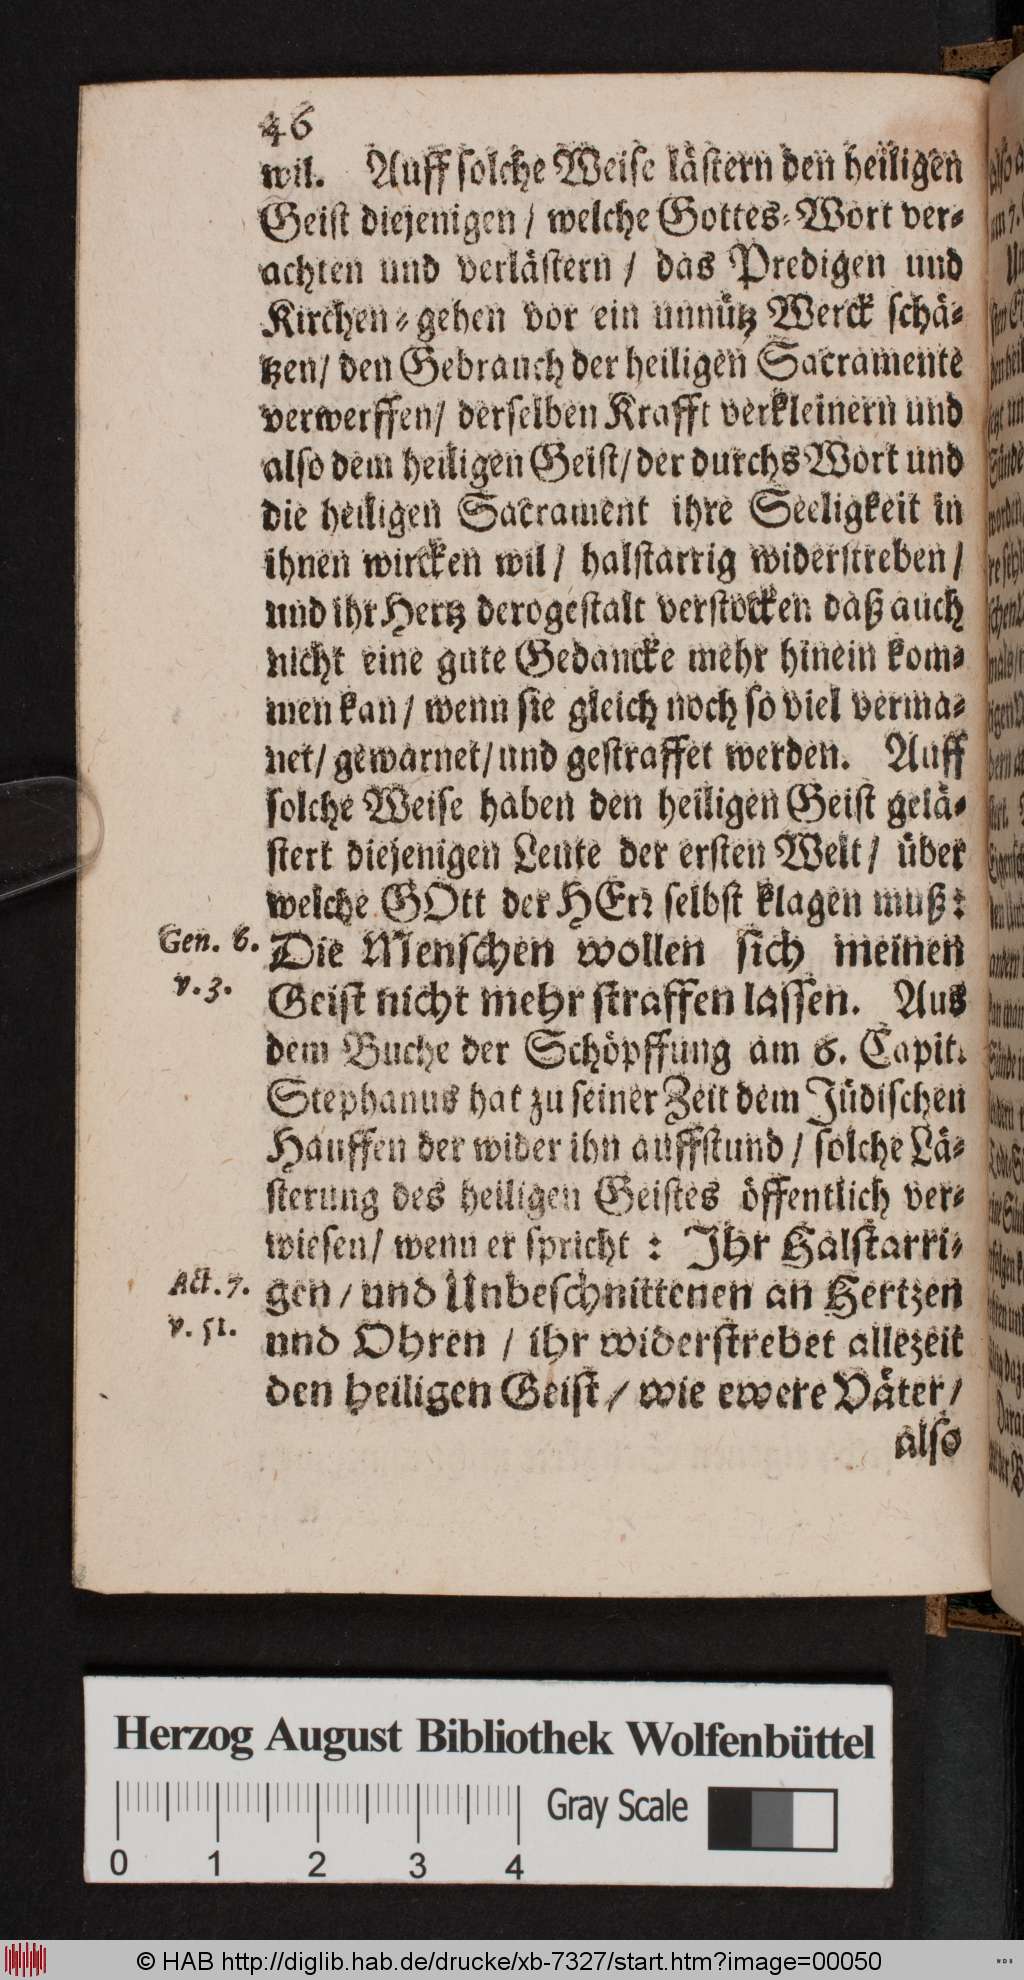 46
wil. Auff solche Weise lästern den heiligen
Geist diejenigen / welche Gottes-Wort ver-
achten und verlästern / das Predigen und
Kirchen-gehen vor ein unnütz Werck schä-
tzen / den Gebrauch der heiligen Sacramente
verwerffen / derselben Krafft verkleinern und
also dem heiligen Geist / der durchs Wort und
die heiligen Sacrament ihre Seeligkeit in
ihnen wircken wil / halstarrig widerstreben /
und ihr Hertz derogestalt verstocken daß auch
nicht eine gute Gedancke mehr hinein kom-
men kan / wenn sie gleich noch so viel verma-
net / gewarnet / und gestraffet werden. Auff
solche Weise haben den heiligen Geist gelä-
stert diejenigen Leute der ersten Welt / über
welche GOtt der HErr selbst klagen muß:
Gen. 6. Die Menschen wollen sich meinen
v. 3. Geist nicht mehr straffen lassen. Aus
dem Buche der Schöpffung am 6. Capit.
Stephanus hat zu seiner Zeit dem Jüdischen
Hauffen der wider ihn auffstund / solche Lä-
sterung des heiligen Geistes öffentlich ver-
wiesen / wenn er spricht : Ihr Halstarri-
Act. 7. gen / und Unbeschnittenen an Hertzen
v. 51. und Ohren / ihr widerstrebet allezeit
den heiligen Geist / wie ewere Väter /
also
Herzog August Bibliothek Wolfenbüttel
Gray Scale
0 1 2 3 4
© HAB http://diglib.hab.de/drucke/xb-7327/start.htm?image=00050